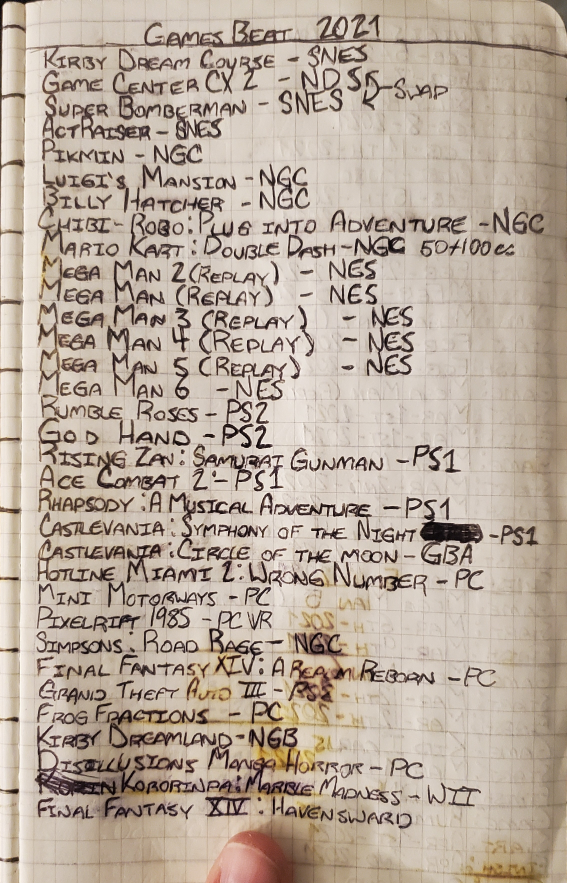 GAMES BEAT 2021
KIRBY DREAM COURSE - SNES
GAME CENTER CX 2 - NDS
SWAP
SUPER BOMBERMAN - SNES
ACTRAISER - SNES
PIKMIN - NGC
LUIGI'S MANSION - NGC
BILLY HATCHER - NGC
CHIBI-ROBO: PLUG INTO ADVENTURE - NGC
MARIO KART: DOUBLE DASH - NGC 50+100cc
MEGA MAN 2 (REPLAY) - NES
MEGA MAN (REPLAY) - NES
MEGA MAN 3 (REPLAY) - NES
MEGA MAN 4 (REPLAY) - NES
MEGA MAN 5 (REPLAY) - NES
MEGA MAN 6 - NES
RUMBLE ROSES - PS2
GOD HAND - PS2
RISING ZAN: SAMURAI GUNMAN - PS1
ACE COMBAT 2 - PS1
RHAPSODY: A MUSICAL ADVENTURE - PS1
CASTLEVANIA: SYMPHONY OF THE NIGHT - PS1
CASTLEVANIA: CIRCLE OF THE MOON - GBA
HOTLINE MIAMI 2: WRONG NUMBER - PC
MINI MOTORWAYS - PC
PIXELRIFT 1985 - PC VR
SIMPSONS: ROAD RAGE - NGC
FINAL FANTASY XIV: A REALM REBORN - PC
GRAND THEFT AUTO III - PS2
FROG FRACTIONS - PC
KIRBY DREAMLAND - NGB
DISILLUSIONS MANGA HORROR - PC
KORORINPA: MARBLE MADNESS - WII
FINAL FANTASY XIV: HAVENSWARD